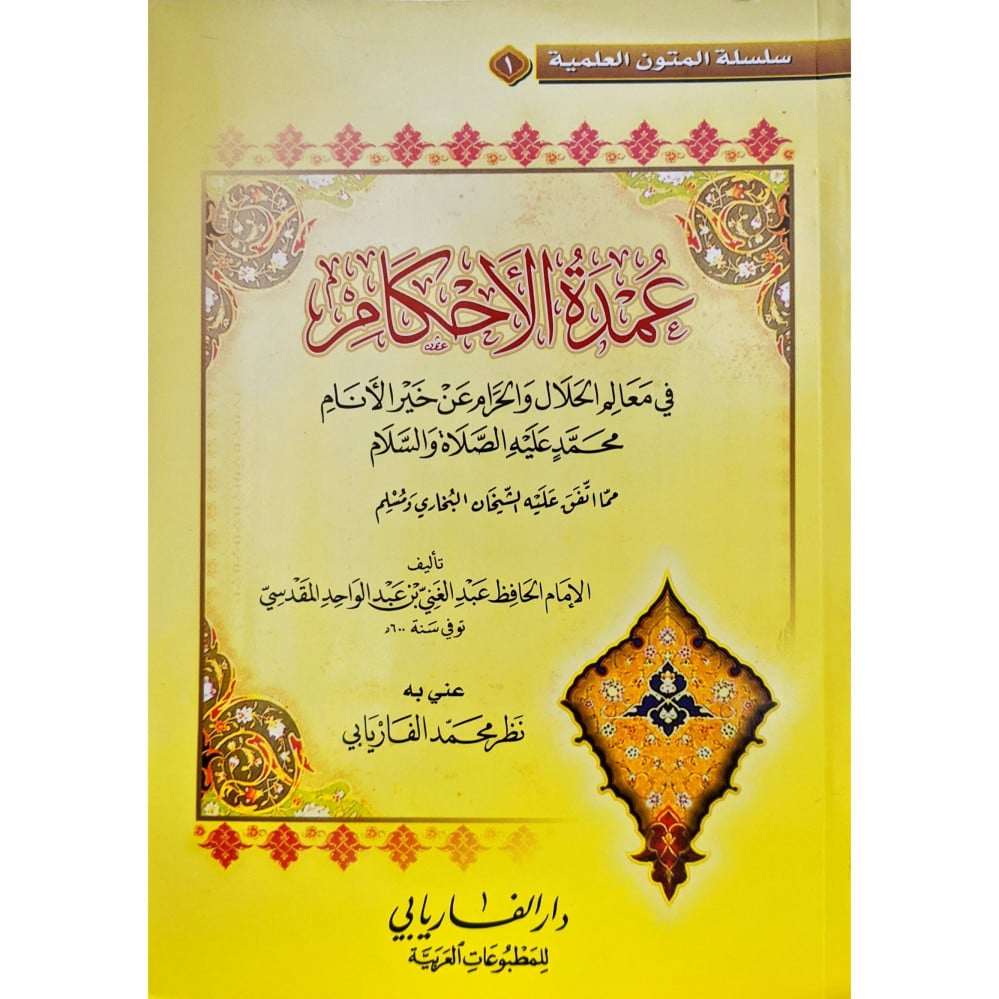 سلسلة المتون العلمية ١
عُمْدَةُ الأَحْكَامِ
في مَعَالِمِ الحَلَالِ وَالحَرَامِ عَنْ خَيْرِ الأَنَامِ
محمَّدٍ عَلَيْهِ الصَّلَاةِ وَالسَّلَام
ممّا اتَّفَقَ عَلَيْه الشَّيخَان البُخَاري وَمُسْلِم
تأليف
الإمَام الحَافِظ عَبْدِ الغَنِيّ بْن عَبْدِ الوَاحِدِ المَقْدسِيّ
توفي سَنة ٦٠٠هـ
عني به
نَظَر محمّد الفَاريَابي
دار الفاريابي
للمَطبُوعَاتِ العَرَبيَّة